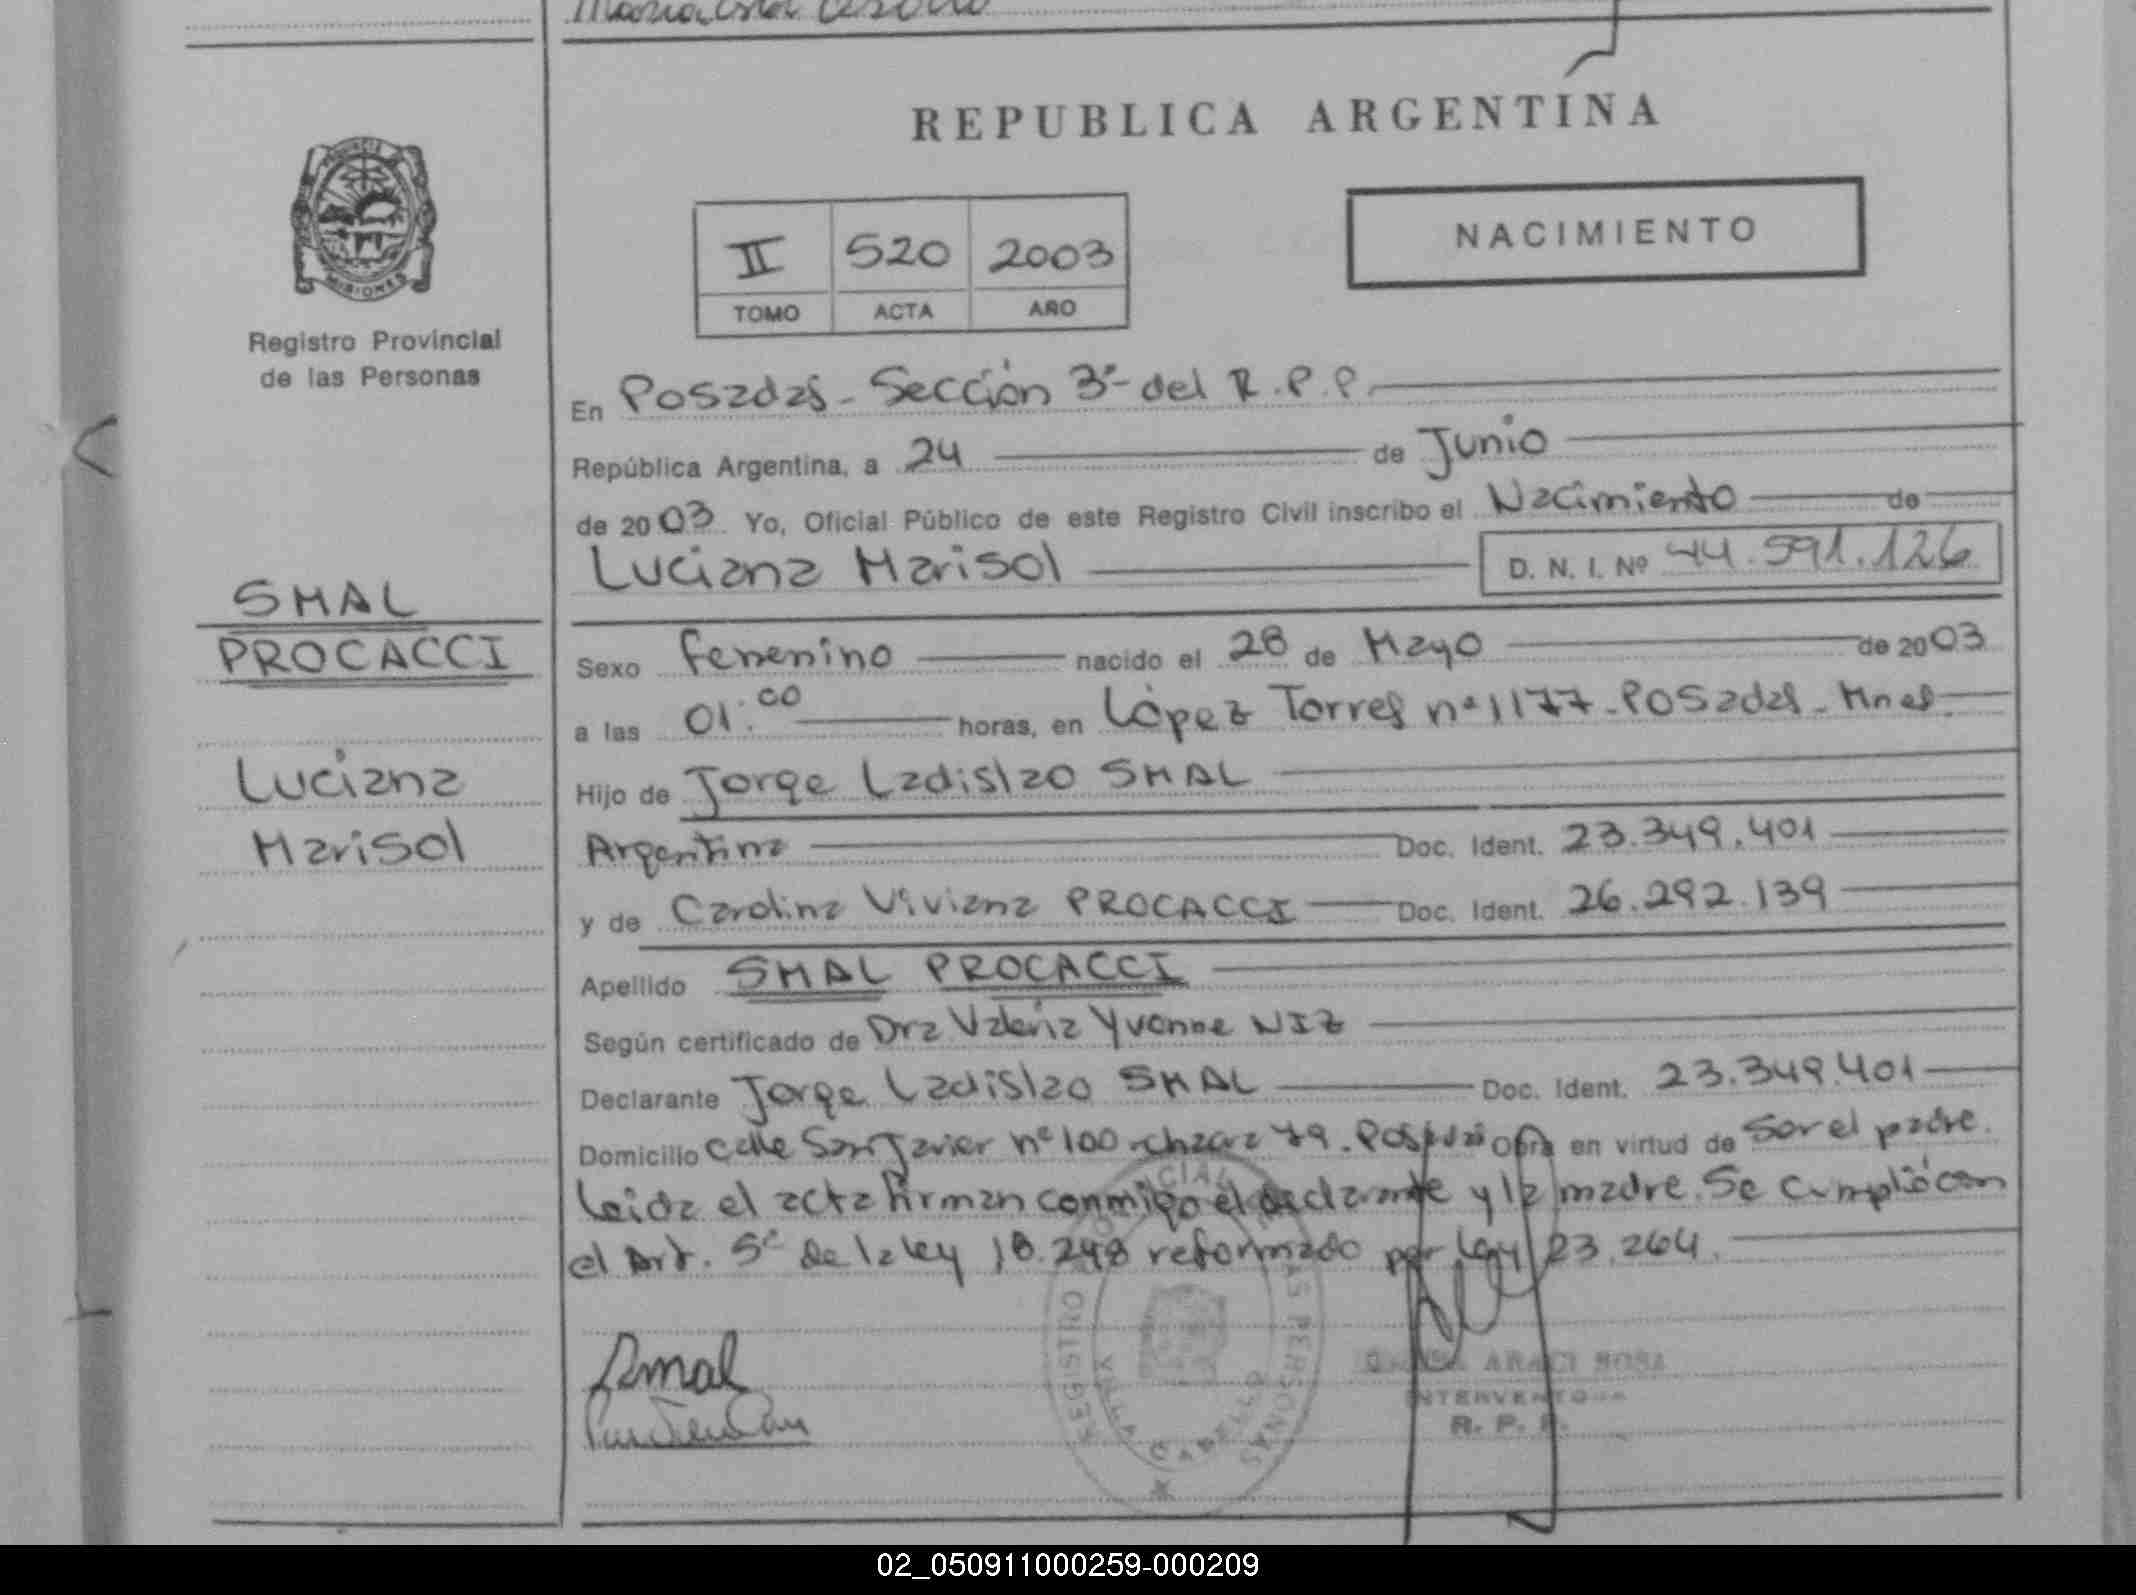 REPUBLICA ARGENTINA
NACIMIENTO
II 520 2003
TOMO ACTA AÑO
PROVINCIA
MISIONES
Registro Provincial
de las Personas
SMAL
PROCACCI
Luciana
Marisol
En Posadas - Sección 3ª del R.P.P.
República Argentina, a 24 de Junio
de 2003 Yo, Oficial Público de este Registro Civil inscribo el Nacimiento de
Luciana Marisol D. N. I. Nº 44.591.126
Sexo femenino nacido el 28 de Mayo de 2003
a las 01:00 horas, en López Torres nº 1177 - Posadas - Mnes
Hijo de Jorge Ladislao SMAL
Argentina Doc. Ident. 23.349.401
y de Carolina Viviana PROCACCI Doc. Ident. 26.292.139
Apellido SMAL PROCACCI
Según certificado de Dra Valeria Yvonne NIZ
Declarante Jorge Ladislao SMAL Doc. Ident. 23.349.401
Domicilio calle San Javier nº 100 - chacra 79 - Posadas Obra en virtud de Ser el padre.
Leida el acta firman conmigo el declarante y la madre. Se cumplió con
el Art. 5º de la ley 18.248 reformado por ley 23.264.
Smal
ARACI SOSA
INTERVENTORA
R. P. P.
REGISTRO PERSONAS
VILLA CABELLO
02_050911000259-000209